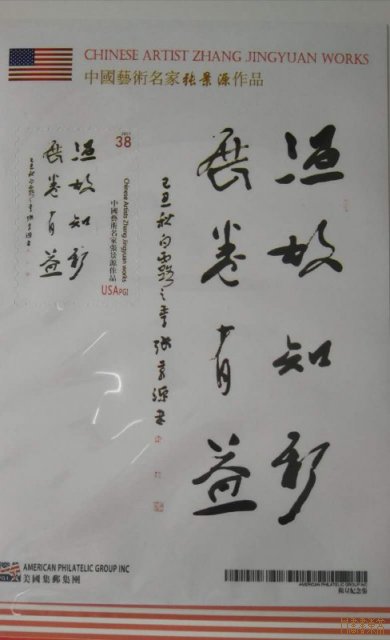 CHINESE ARTIST ZHANG JINGYUAN WORKS
中國藝術名家张景源作品
38
溫故知新
展卷有益
Chinese Artists Zhang Jingyuan works
中國藝術名家張景源作品
USAPGI
溫故知新
展卷有益
己丑秋白露之季張景源書
AMERICAN PHILATELIC GROUP INC
美國集郵集團
AMERICAN PHILATELIC GROUP INC